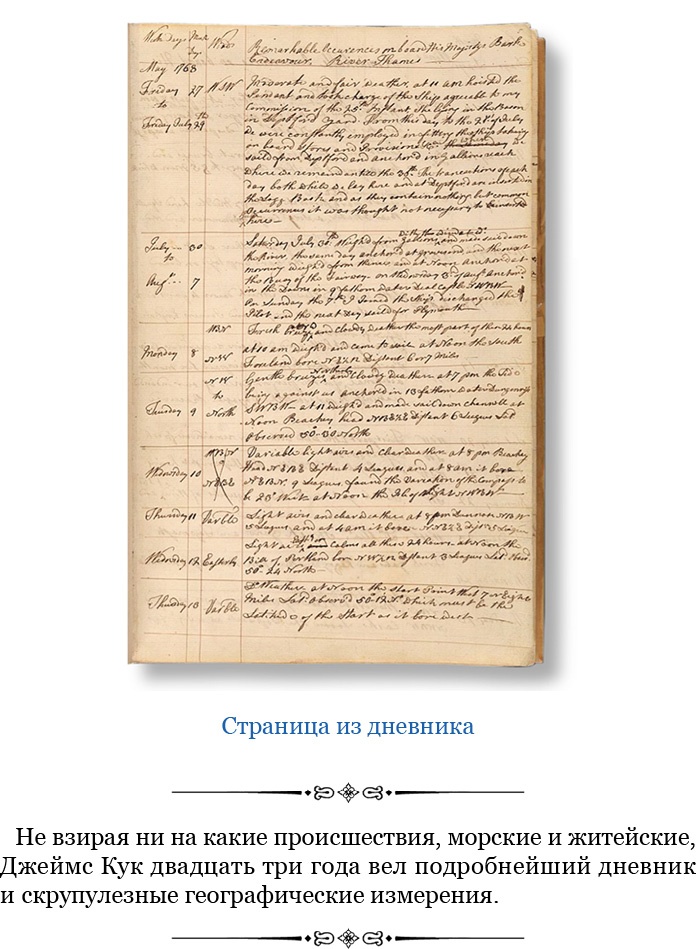 Week Days
Winds
Remarkable Occurences on board His Majestys Bark
Endeavour River Thames
May 1768
Friday 27 NW Moderate and fair Weather, at 11 am hoisted the
to Pendant and took charge of the Ship agreeable to my
Commission of the 25th Instant, She lying in the Bason
Friday July 29th in Deptford Yard. From this day to the 21st of July
We were constantly employed in fitting the Ship takeing
on board Stores and Provisions &c when We
sailed from Deptford and anchord in Gallions reach
where we remaind untill the 30th The transactions of each
day both while We lay here and at Deptford are inserted in
the Logg Book and as they contain nothing but common
Occurrences it was thought not necessary to insert
here
July 30 Saturday July 30th Weighd from Gallions, and made sail down
to the River, the same day anchord at gravesend and the next
morning Weighd from thence and at Noon Anchord at
Augst 7 the Buoy of the Fairway. On Wednesday 3rd Augst anchord
in the Downs in 9 fathom Water Deal Castle NWBW
On Sunday the 7th I Joined the Ship, discharged the
Pilot and the next Day saild for Plymouth
WBN Fresh and Cloudy Weather the most part of these 24 hours
Monday 8 NW at 10 am Weighd and came to sail at Noon the South
Foreland bore Distant 6 or 7 Miles
NW Gentle breezes and Cloudy Weather at 7 pm the Tide
to being against us anchored in 13 fathom Water Dungeness
Tuesday 9 North SWBW at 11 Weighd and made sail down Channell at
Noon Beachey head Distant 6 Leagues Lat
Observed 50°-30 North
Variable light airs and Clear Weather at 8 pm Beachey
Wednesday 10 Head Distant 4 Leagues, and at 8 am it bore
9 Leagues found the Variation of the Compass to
be 23° West at Noon the Isle of Wight NWBW
Thursday 11 Varble Light airs and clear Weather at 8 pm Dunnose NBW
5 Leagues and at 4 am it bore
Light airs and Calms all these 24 hours at Noon the
Wednesday 12 Easterly Bill of Portland bore Distant 3 Leagues Lat. Obsd.
50°-24 North
Weather at Noon the Start Point
Thursday 13 Varble Miles Lat. Observd 50°-12 No. which must be the
Latitude of the Start as it bore West
Страница из дневника
Не взирая ни на какие происшествия, морские и житейские,
Джеймс Кук двадцать три года вел подробнейший дневник
и скрупулезные географические измерения.